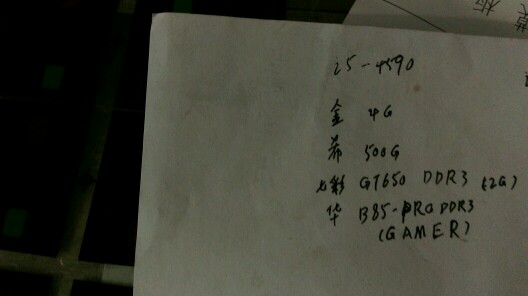 i5-4590
金 4G
希 500G
七彩 GT650 DDR3 (2G)
华 B85-PRO DDR3
(GAMER)